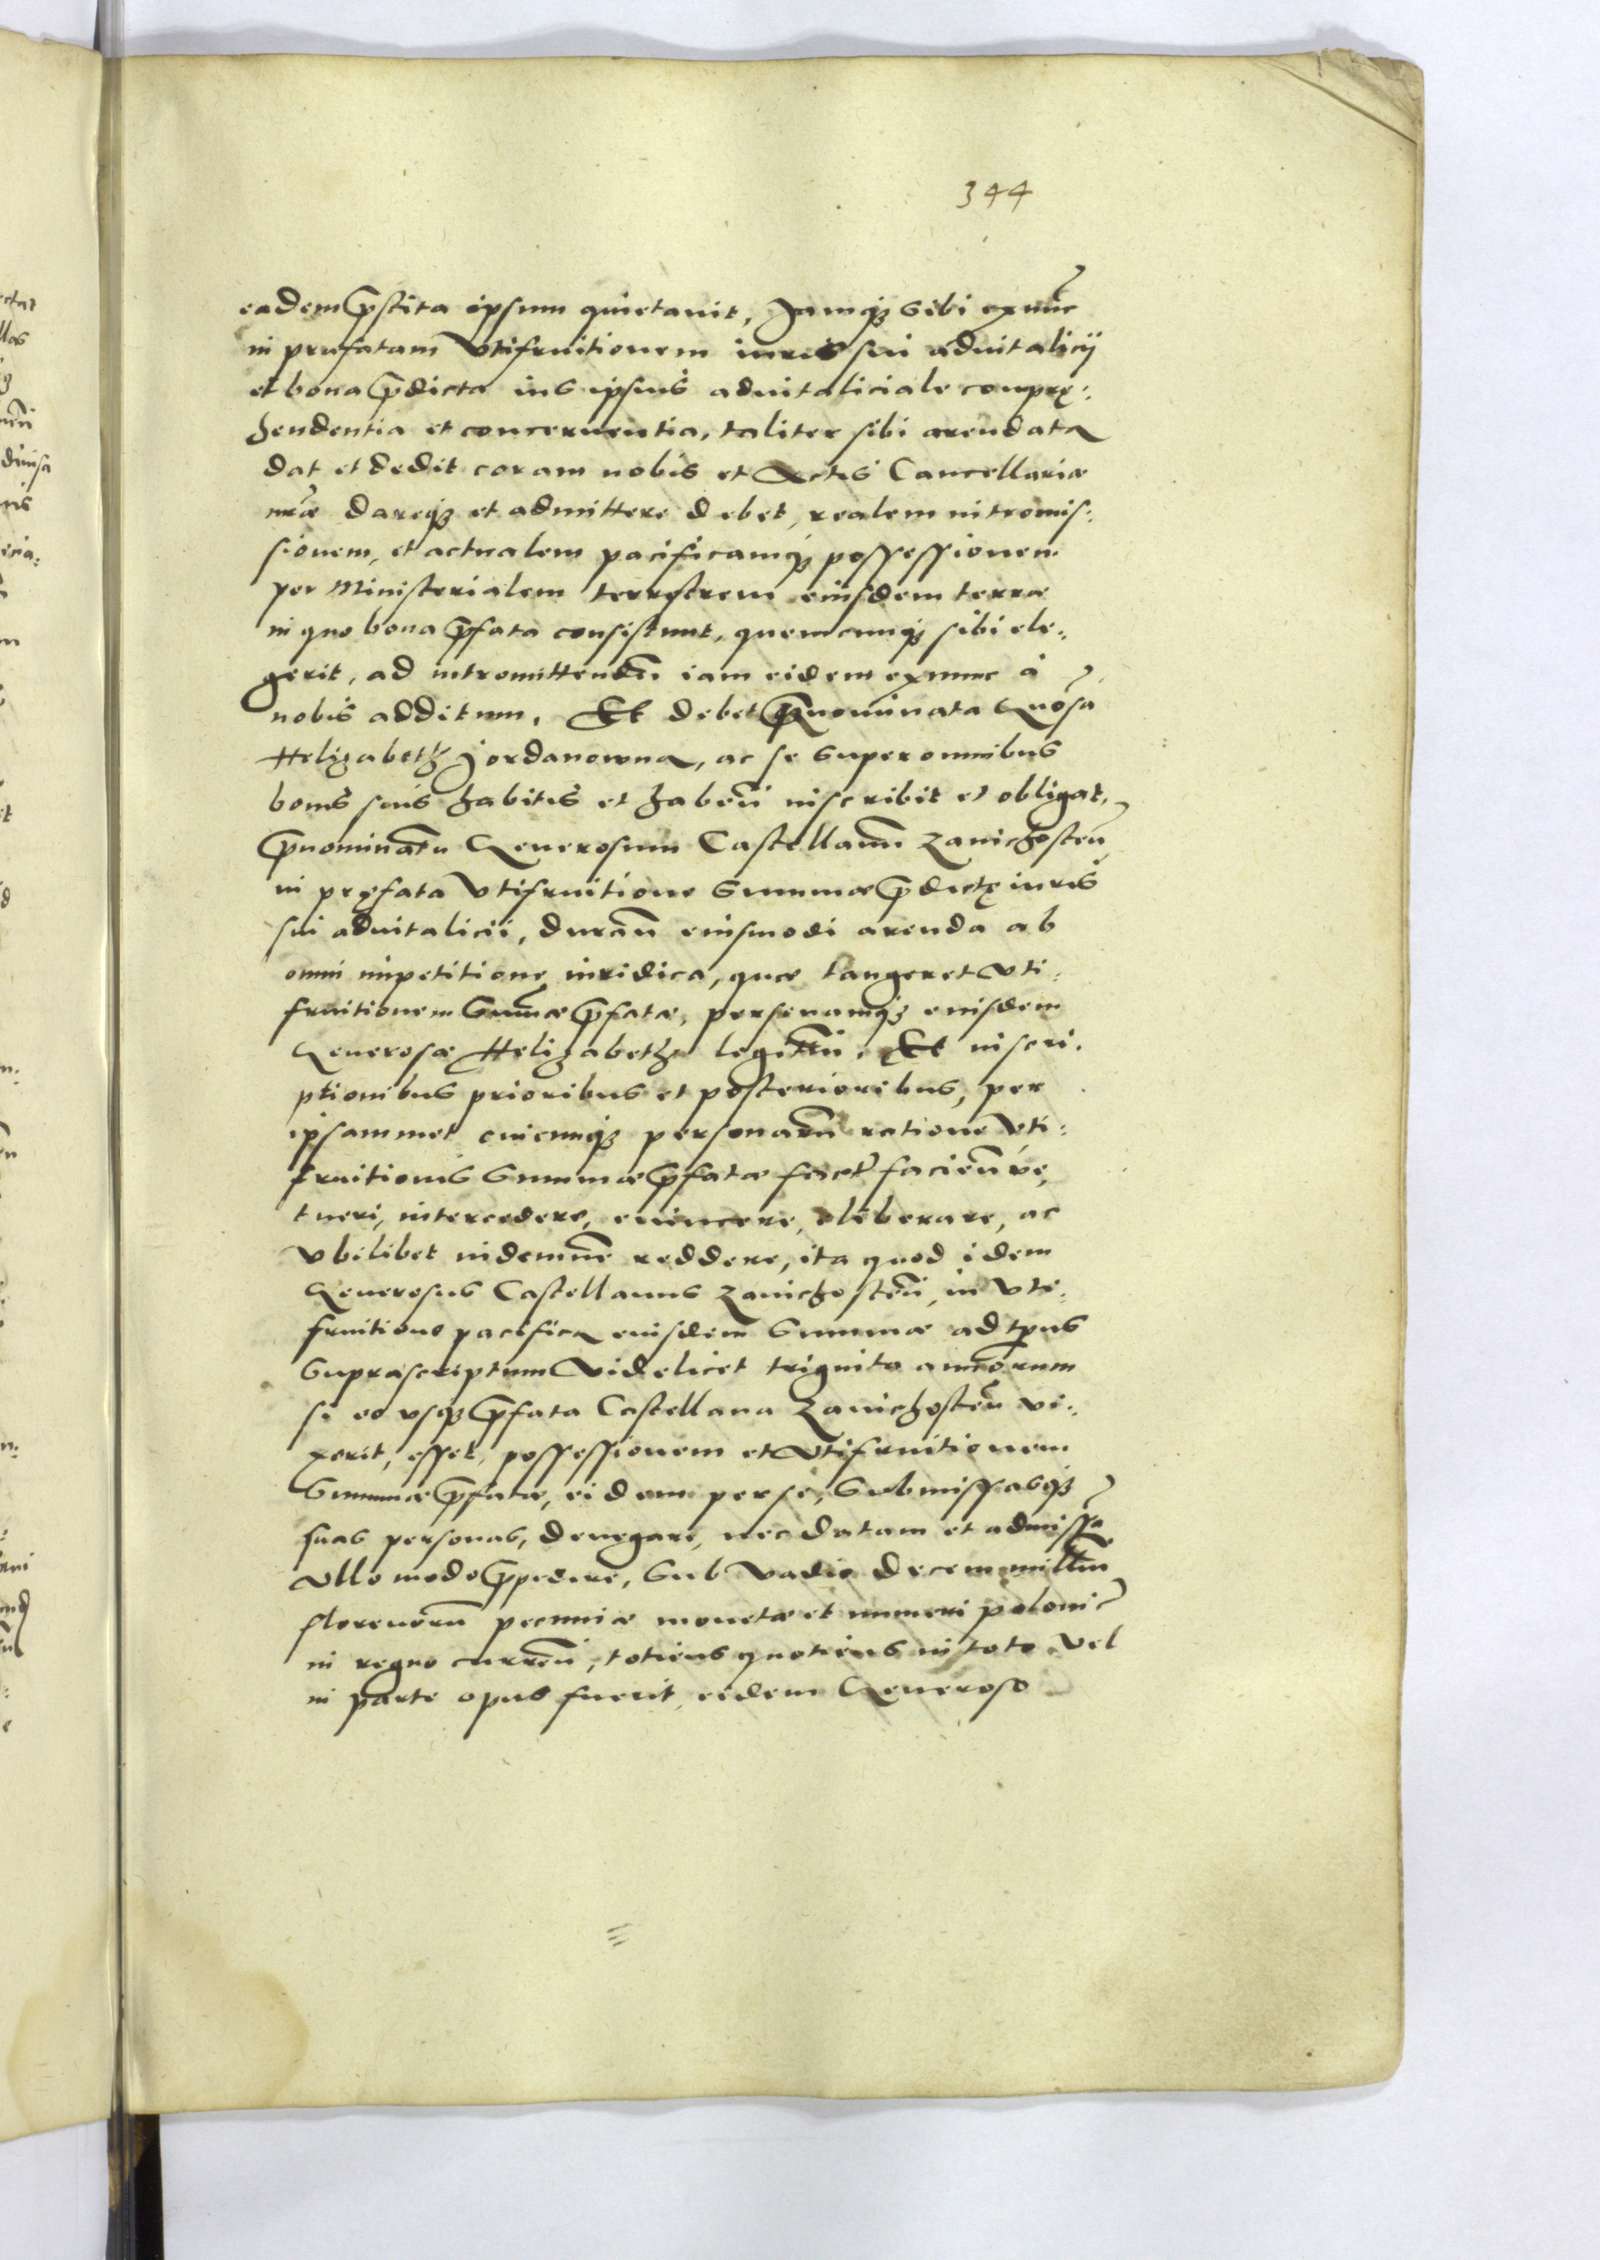 344
eadem pręstita ipsum quietauit, Jamqꝫ sibi exnũc
in præfatam Vtifruitionem iuris sui aduitalicij
et bona p̃dicta ius ipsius aduitaliciale comprę:
hendentia et concernentia, taliter sibi arendata
dat et dedit coram nobis et Actis Cancellariæ
nr̃æ dareqꝫ et admittere debet, realem intromis:
sionem, et actualem pacificamqꝫ possessionem
per Ministerialem terrestrem eiusdem terræ
in quo bona p̃fata consistunt, quemcunqꝫ sibi ele:
gerit, ad intromittendũ iam eidem exnunc à
nobis additum. Et debet p̃nominata Gnõsa
Helizabeth Jordanowna, ac se super omnibus
bonis suis habitis et habeñ inscribit et obligat,
p̃nominatũ Generosum Castellanũ Zawichosteñ
in pręfata Vtifruitione Summæ p̃dictę iuris
sui aduitalicii, durañ eiusmodi arenda ab
omni impetitione iuridica, quæ tangeret Vti:
fruitionem Sum̃æ p̃fatæ, personamqꝫ eiusdem
Generosæ Helizabeth legittim̃. Et inscri:
ptionibus prioribus et posterioribus, per
ipsammet cuicunqꝫ personarũ ratione Vti:
fruitionis Summæ p̃fatæ fact̃ facieñ ve,
tueri, intercedere, euincere, liberare, ac
Vbilibet indemnẽ reddere, ita quod idem
Generosus Castellanus Zawichosteñ, in Vti:
fruitione pacifica eiusdem Summæ ad tp̃us
Suprascriptum Videlicet triginta annorum
si eo vsqꝫ p̃fata Castellana Zawichosteñ vi:
xerit, esset, possessionem et Vtifruitionem
Summæ p̃fatæ, eidem per se, Submissasqꝫ
suas personas, denegare, nec datam et admissã
Vllo modo p̃pedire, Sub Vadio decem milliũ
florenorũ pecuniæ monetæ et numeri polonic̃
in regno curreñ, totiens quotiens in toto Vel
in parte opus fuerit, eidem Generoso